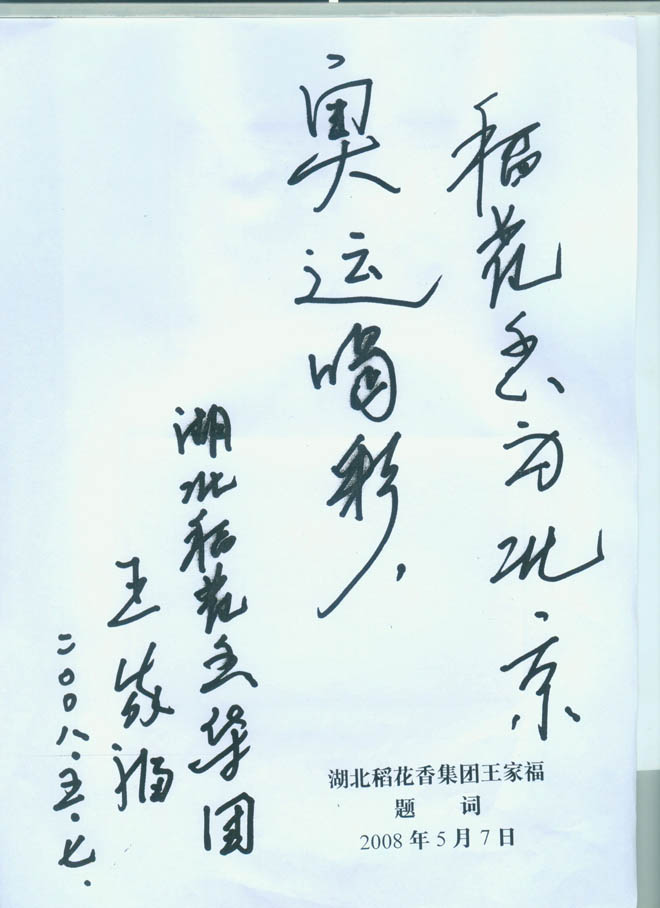 稻花香为北京
奥运喝彩，
湖北稻花香集团
王家福
二〇〇八.五.七.
湖北稻花香集团王家福
题 词
2008年5月7日